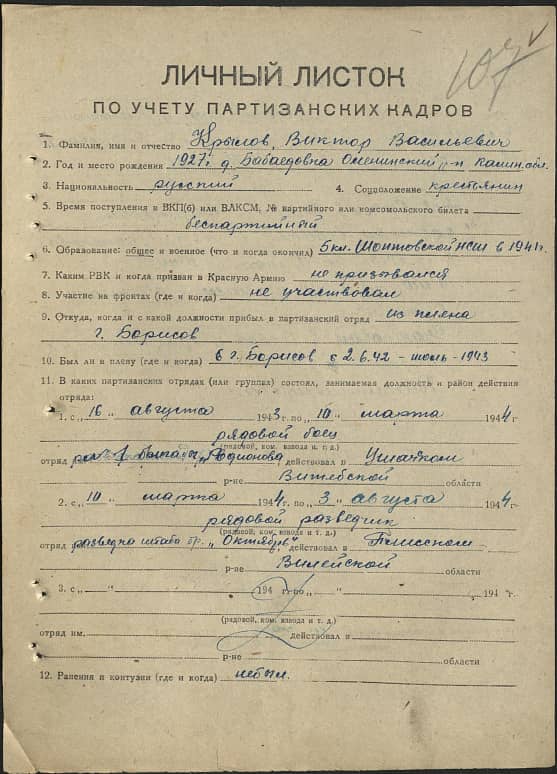 107
ЛИЧНЫЙ ЛИСТОК
ПО УЧЕТУ ПАРТИЗАНСКИХ КАДРОВ
1. Фамилия, имя и отчество Крылов, Виктор Васильевич
2. Год и место рождения 1927г. д. Бабаедовка Оленинский р-н Калин. обл.
3. Национальность русский 4. Соцположение крестьянин
5. Время поступления в ВКП(б) или ВЛКСМ, № партийного или комсомольского билета
беспартийный
6. Образование: общее и военное (что и когда окончил) 5 кл. НСШ в 1941г.
7. Каким РВК и когда призван в Красную Армию не призывался
8. Участие на фронтах (где и когда) не участвовал
9. Откуда, когда и с какой должности прибыл в партизанский отряд из плена
г. Борисов
10. Был ли в плену (где и когда) в г. Борисов с 2.6.42 - июль - 1943
11. В каких партизанских отрядах (или группах) состоял, занимаемая должность и район действия
отряда:
1. с „16„ августа 1943 г. по „10„ марта 1944 г.
рядовой боец
(рядовой, ком. взвода и т. д.)
отряд бригады „Родионова действовал в Ушачком
р-не Витебской области
2. с „10„ марта 1944 г. по „3„ августа 1944 г.
рядовой разведчик
(рядовой, ком. взвода и т. д.)
отряд разведка штаба бр. „Октябрь" действовал в Плисском
р-не Вилейской области
3. с „ „ 194 г. по „ „ 194 г.
(рядовой, ком. взвода и т. д.)
отряд им. действовал в
р-не области
12. Ранения и контузии (где и когда) не был.